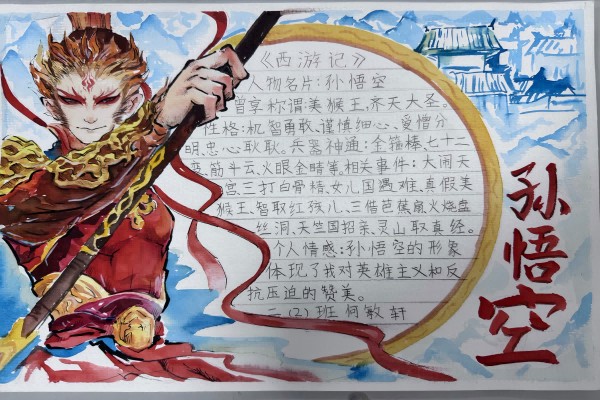 《西游记》
人物名片:孙悟空
冒享称谓:美猴王、齐天大圣。
性格:机智勇敢、谨慎细心、爱憎分
明、忠心耿耿。兵器神通:金箍棒、七十二
变、筋斗云、火眼金睛等。相关事件:大闹天
宫、三打白骨精、女儿国遇难、真假美
猴王、智取红孩儿、三借芭蕉扇、火烧盘
丝洞、天竺国招亲、灵山取真经。
个人情感:孙悟空的形象
体现了我对英雄主义和反
抗压迫的赞美。
二(2)班 何敏轩
孙悟空